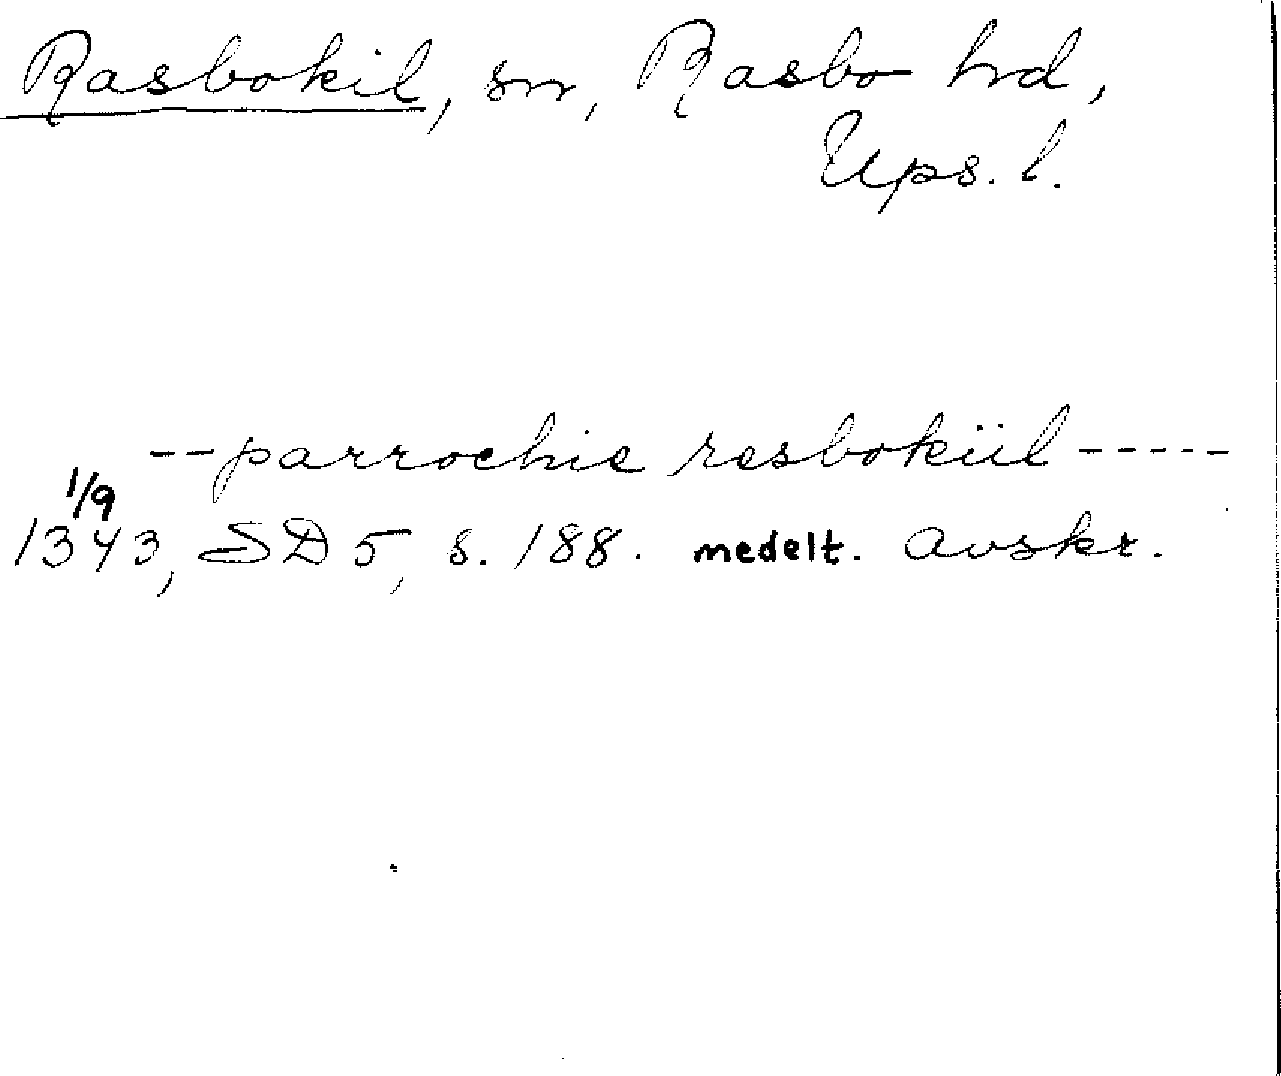 Rasbokil, sn, Rasbo hrd,
Ups. l.
--parrochie resbokiil-----
1/9
1343, SD 5, s. 188. medelt. avskr.